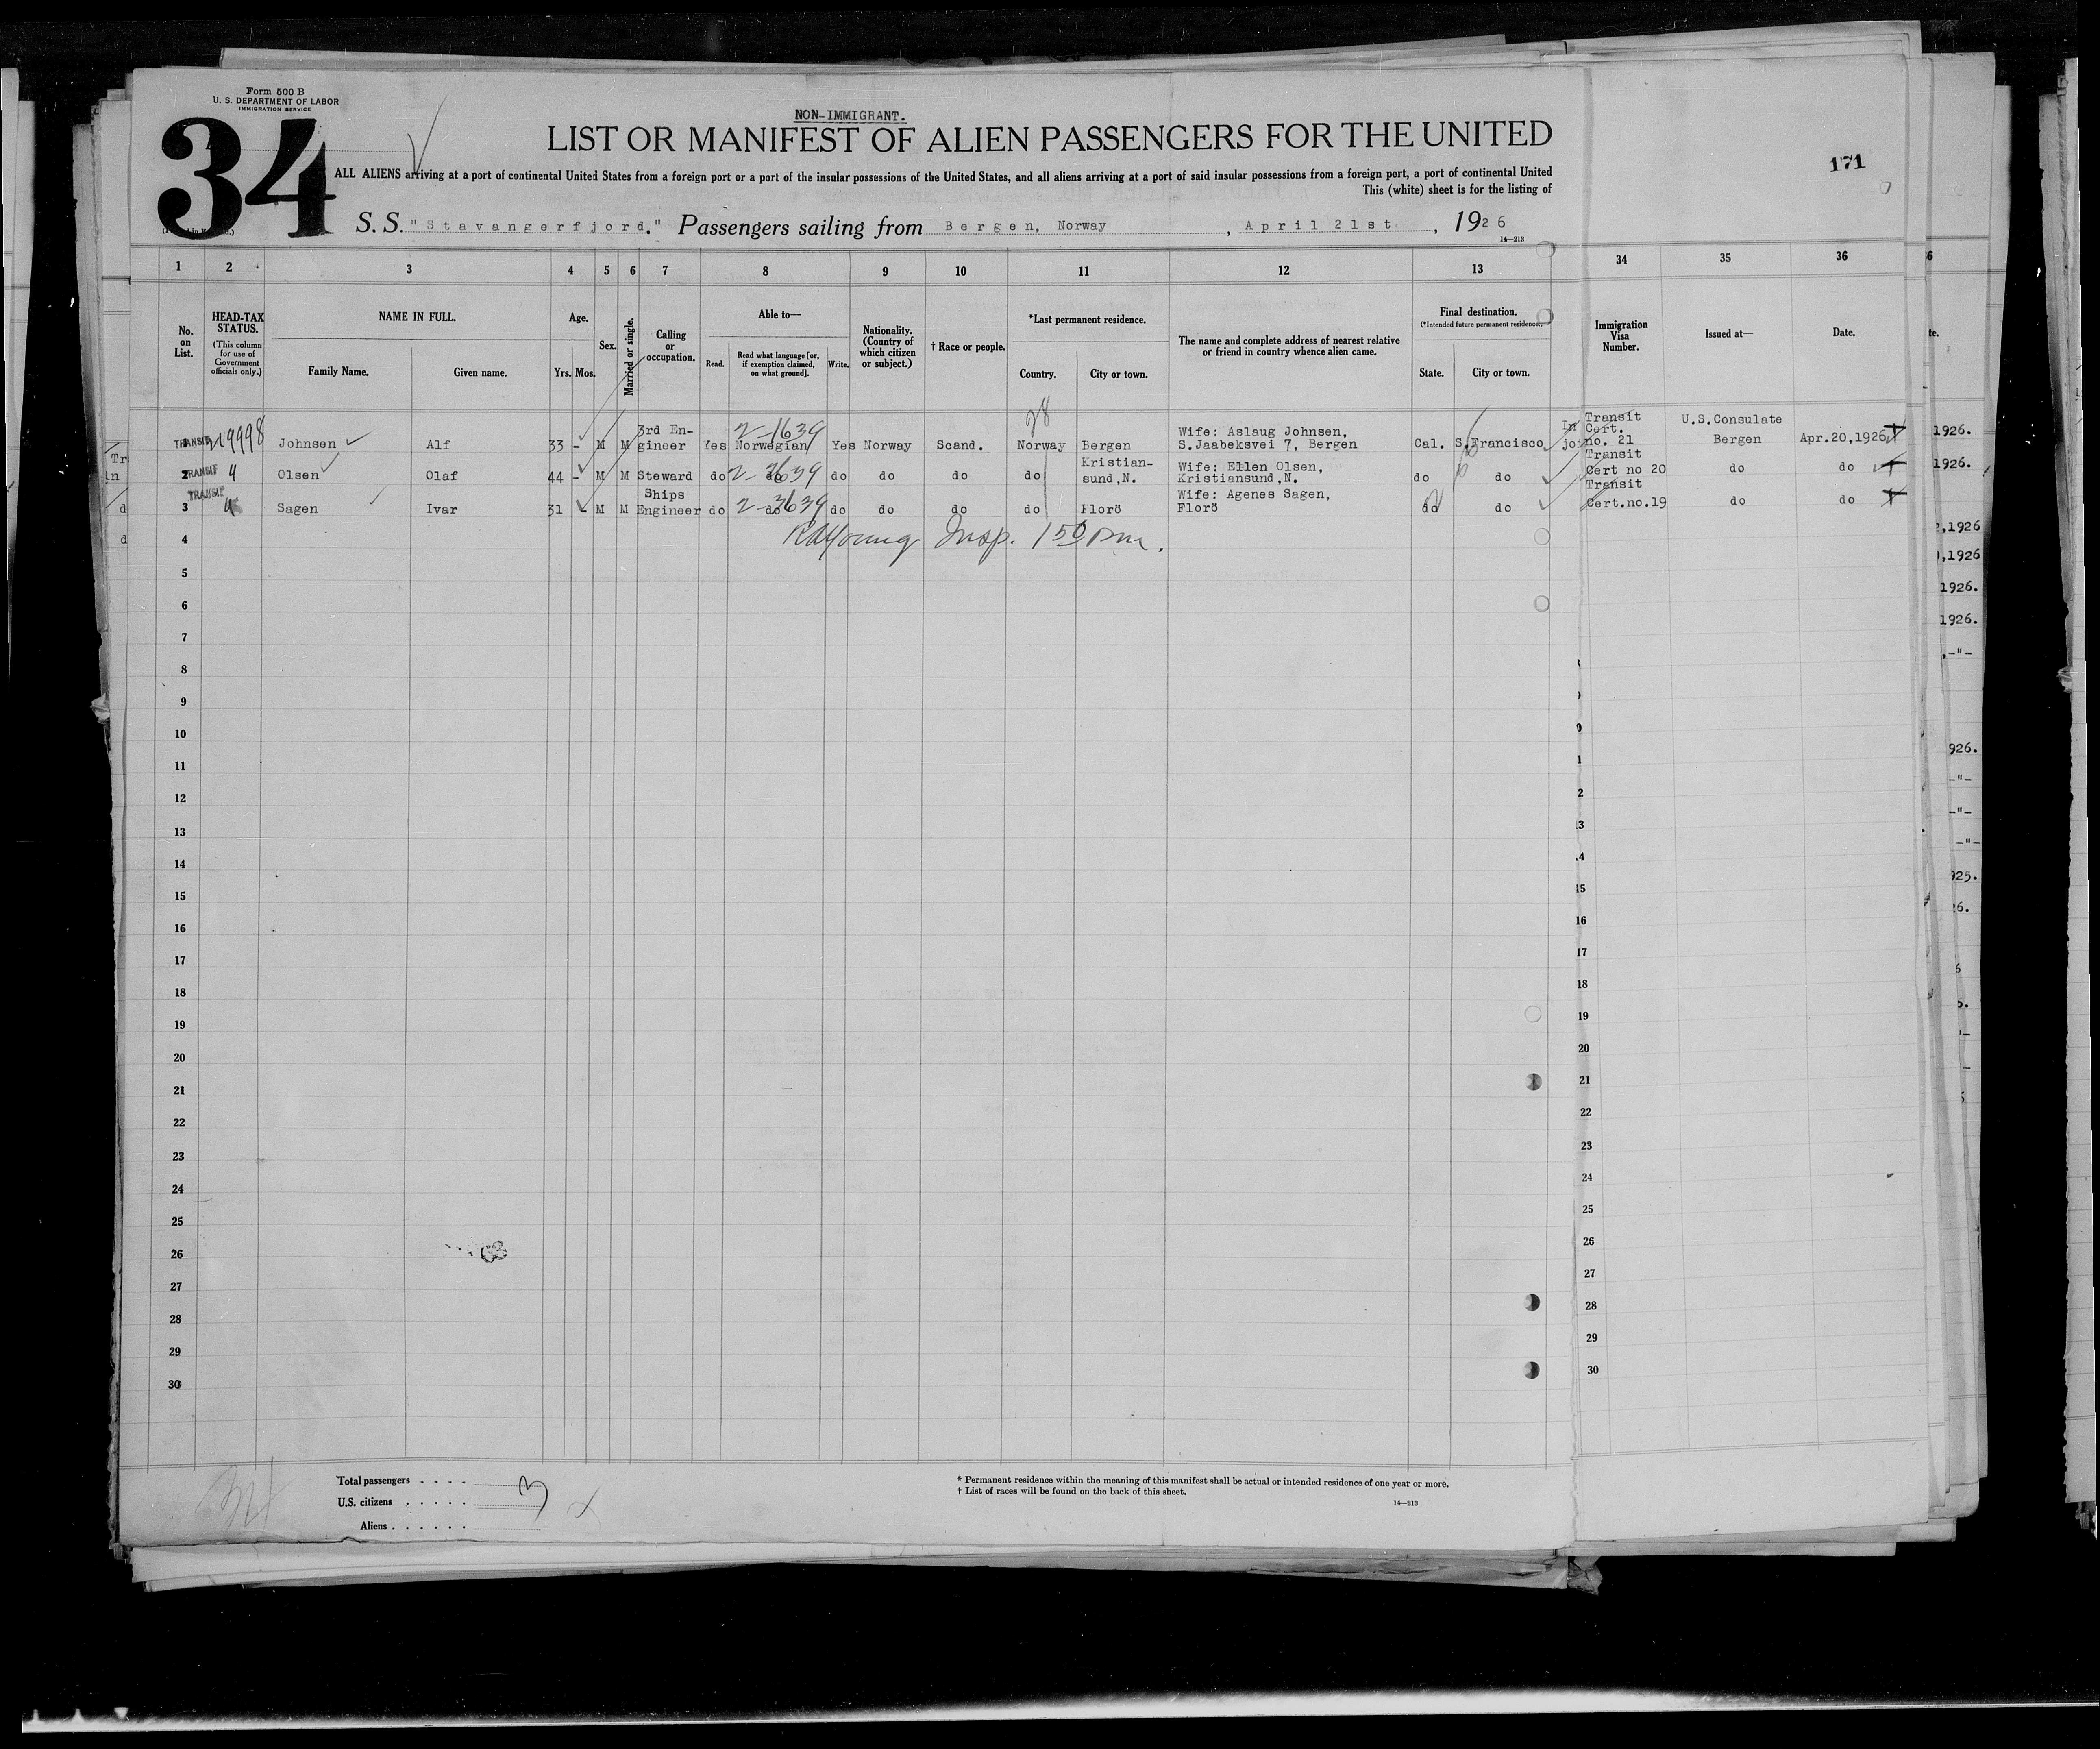 Form 500 B
U. S. DEPARTMENT OF LABOR
IMMIGRATION SERVICE
34
NON-IMMIGRANT.
LIST OR MANIFEST OF ALIEN PASSENGERS FOR THE UNITED
171
ALL ALIENS arriving at a port of continental United States from a foreign port or a port of the insular possessions of the United States, and all aliens arriving at a port of said insular possessions from a foreign port, a port of continental United
This (white) sheet is for the listing of
S. S. "Stavangerfjord." Passengers sailing from Bergen, Norway, April 21st, 1926
14—213
1 2 3 4 5 6 7 8 9 10 11 12 13 34 35 36
No. on List.
HEAD-TAX STATUS.
(This column for use of Government officials only.)
NAME IN FULL.
Family Name. Given name.
Age.
Yrs. Mos.
Sex.
Married or single.
Calling or occupation.
Able to—
Read. Read what language [or, if exemption claimed, on what ground]. Write.
Nationality. (Country of which citizen or subject.)
† Race or people.
*Last permanent residence.
Country. City or town.
The name and complete address of nearest relative or friend in country whence alien came.
Final destination.
(*Intended future permanent residence.)
State. City or town.
Immigration Visa Number.
Issued at—
Date.
TRANSIT 219998 Johnsen Alf 33 - M M 3rd Engineer Yes Norwegian 2-1639 Yes Norway Scand. Norway 28 Bergen Wife: Aslaug Johnsen, S.Jaabeksvei 7, Bergen Cal. S.Francisco Transit Cert. no. 21 U.S.Consulate Bergen Apr.20,1926
2 TRANSIT 4 Olsen Olaf 44 - M M Steward do do 2-3639 do do do do Kristiansund,N. Wife: Ellen Olsen, Kristiansund,N. do do Transit Cert no 20 do do
3 TRANSIT Sagen Ivar 31 - M M Ships Engineer do do 2-3639 do do do do Florö Wife: Agenes Sagen, Florö do do Transit Cert.no.19 do do
4 RAYoung Insp. 150 pm.
5
6
7
8
9
10
11
12
13
14
15
16
17
18
19
20
21
22
23
24
25
26
27
28
29
30
Total passengers 3
U.S. citizens
Aliens
* Permanent residence within the meaning of this manifest shall be actual or intended residence of one year or more.
† List of races will be found on the back of this sheet.
14—213